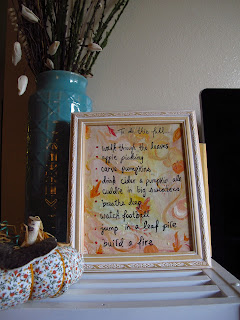 To do this fall...
• walk through the leaves
• apple picking
• carve pumpkins
• drink cider & pumpkin ale
cuddle in big sweaters
• breathe deep
• watch football
• jump in a leaf pile
• build a fire